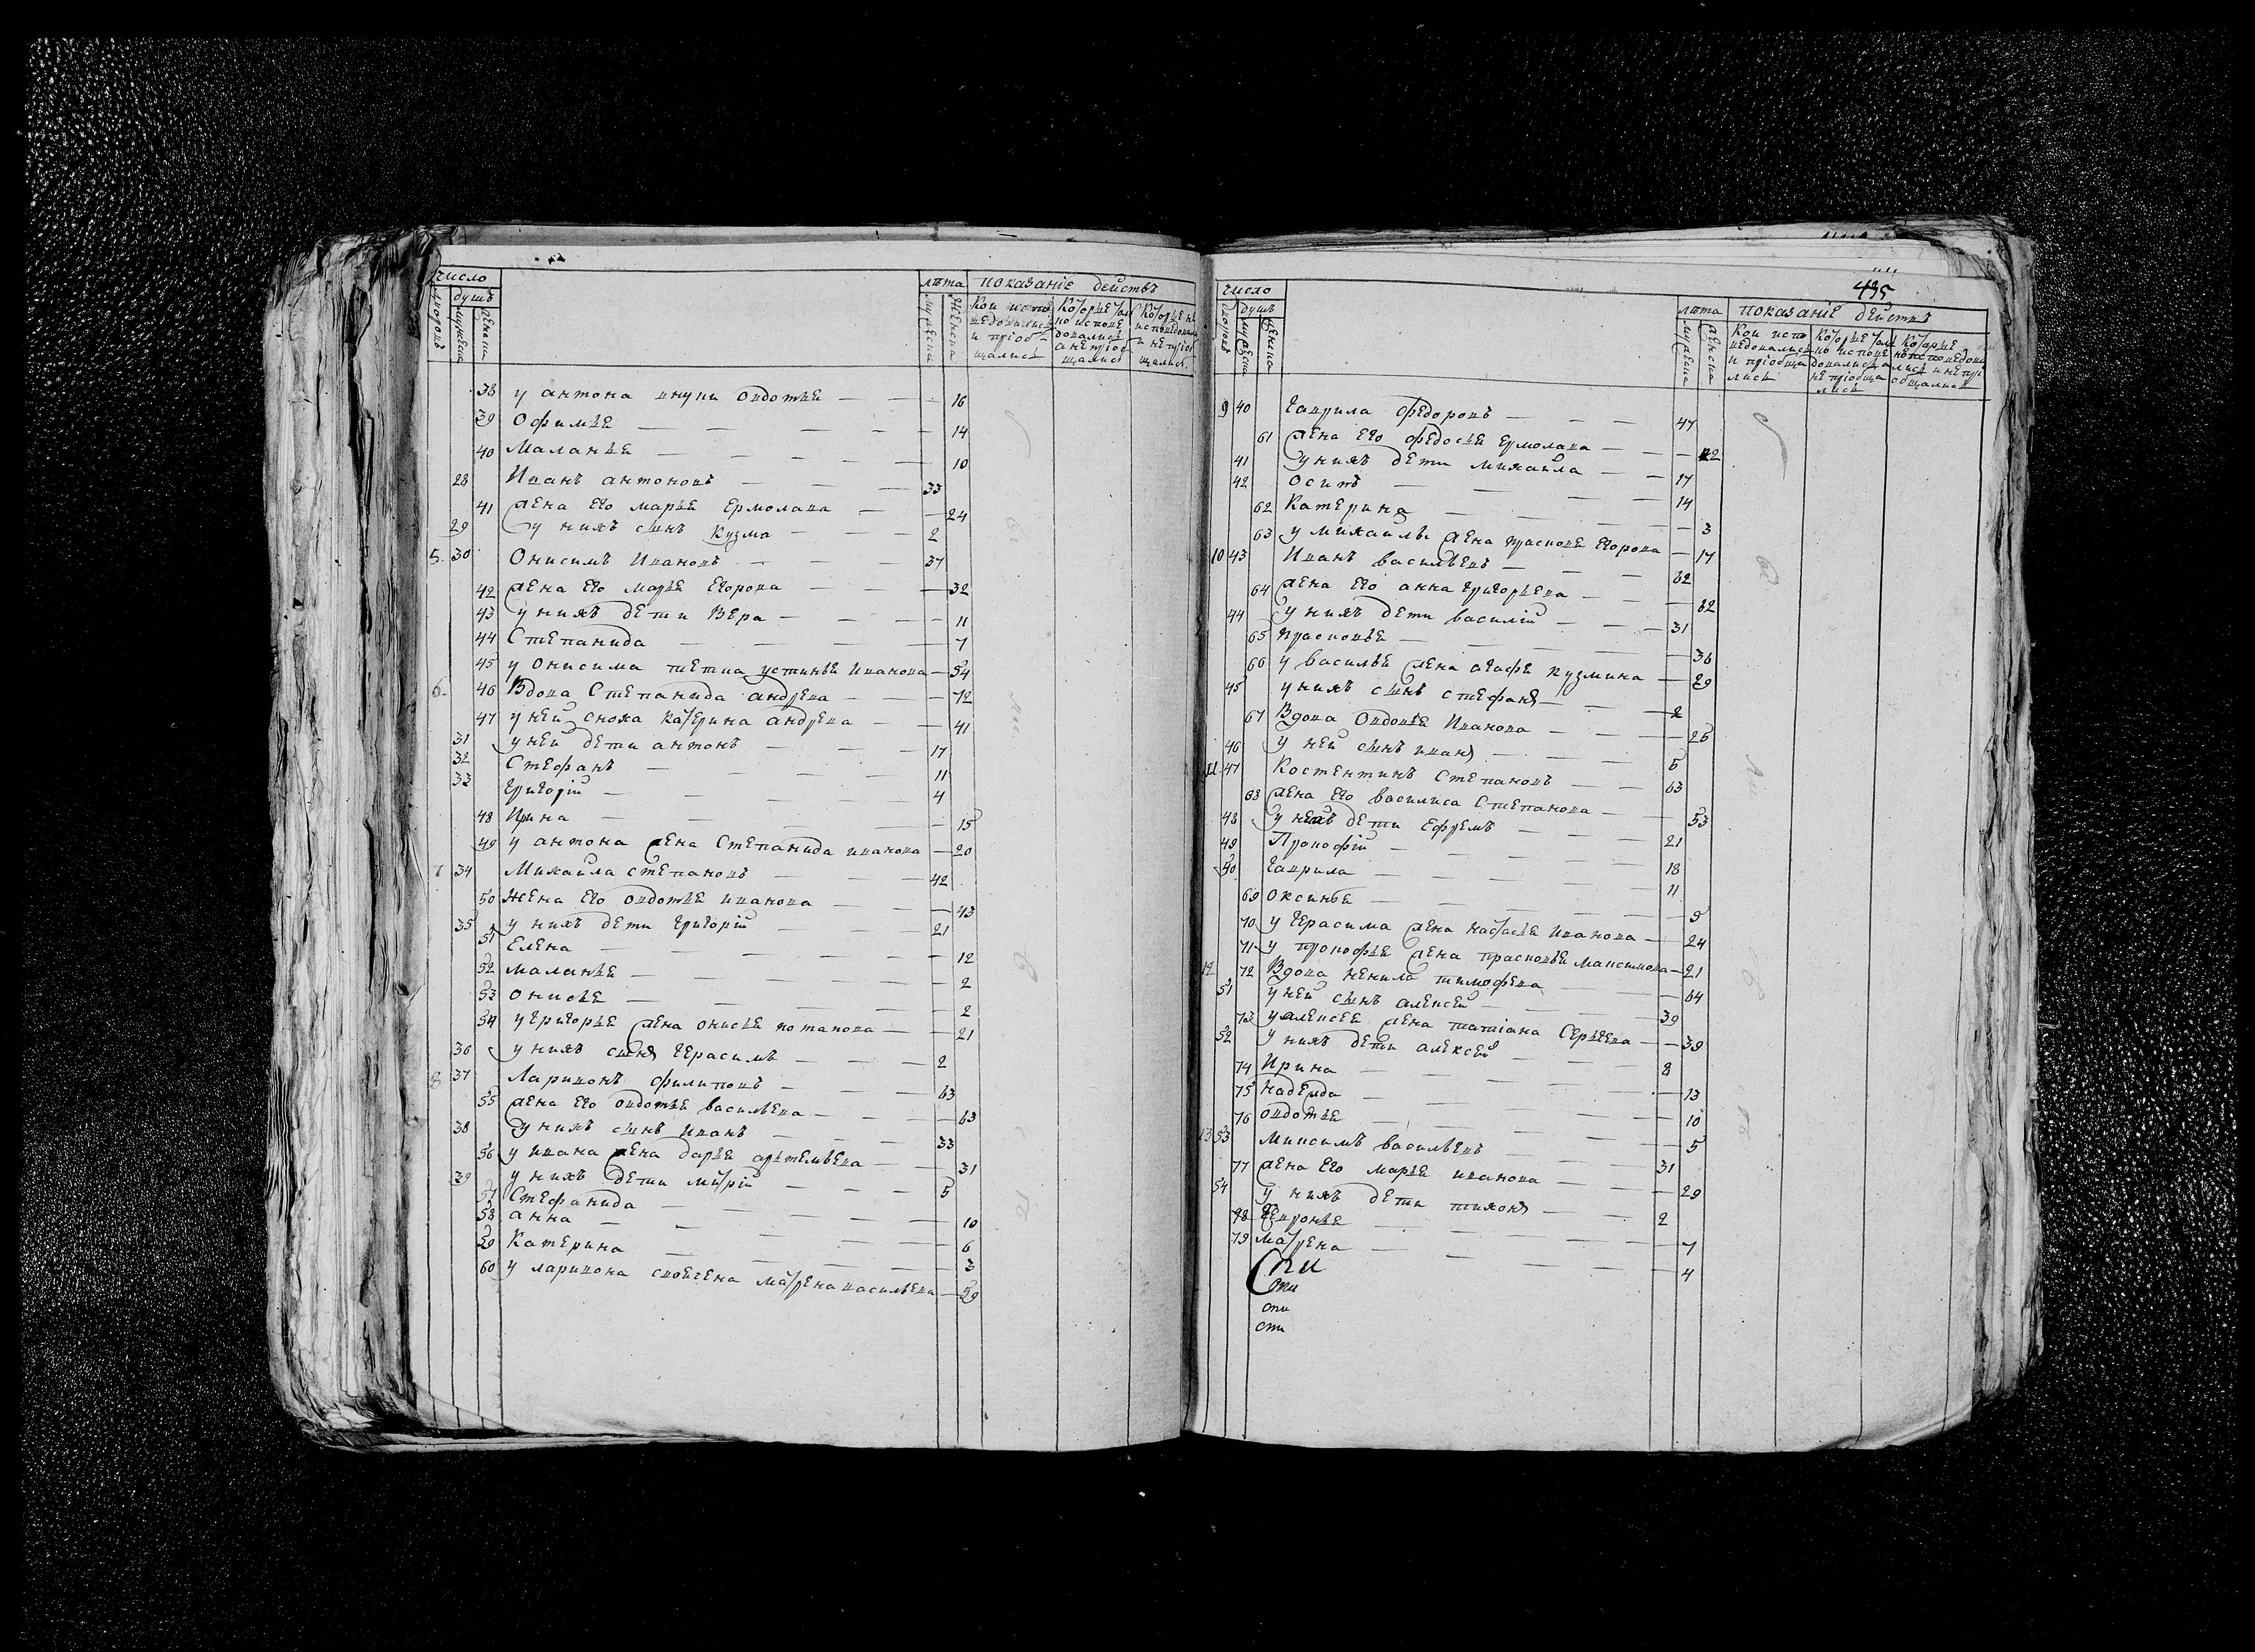 число лѣта показаніе действъ
дворовъ душъ мужеска женска мужеска женска
Кои испо которые токмо которые не
ведовались но испове исповедова
и приоб донались и не приоб
щались а не приоб щались
щались
38 у антона внуки овдотья — 16
39 Офимья — 14
40 Маланья — 10
28 Иванъ антоновъ — 33
41 жена его марья Ермолава — 24
29 у нихъ сынъ кузма — 2
5 30 Онисимъ Ивановъ — 37
42 жена его марья егорова — 32
43 у нихъ дети Вера — 11
44 Степанида — 7
45 у Онисима тетка устинья иванова — 54
6 46 Вдова Степанида андрева — 72
47 у ней сноха катерина андрева — 41
31 у ней дети антонъ — 17
32 Стефанъ — 11
33 григорій — 4
48 Ирина — 15
49 у антона жена Степанида иванова — 20
7 34 Михайла степановъ — 42
50 жена его овдотья иванова — 43
35 у нихъ дети григорій — 21
51 Елена — 12
52 маланья — 2
53 онисья — 2
54 у григорья жена онисья потапова — 21
36 у нихъ сынъ герасимъ — 2
8 37 Ларивонъ филиповъ — 63
55 жена его овдотья васильева — 63
38 у нихъ сынъ иванъ — 33
56 у ивана жена дарья артемьева — 31
39 у нихъ дети митрій — 5
57 Стефанида — 10
58 анна — 6
59 Катерина — 3
60 у ларивона матрена васильева — 59
435
число лѣта показаніе действъ
дворовъ душъ мужеска женска мужеска женска
Кои испо которые токмо которые
ведовались но испове не исповедова
и приобща довались а лись и не при
лись не приобща общались
лись
9 40 гаврила федоровъ — 47
61 жена его федосья ермолава — 42
41 у нихъ дети михайла — 17
42 осипъ — 14
62 Катерина — 3
63 у михайлы жена прасковья егорова — 17
10 43 Иванъ васильевъ — 62
64 жена его анна григорьева — 62
44 у нихъ дети василій — 31
65 прасковья — 36
66 у василья жена агафья кузмина — 29
45 у нихъ сынъ стефанъ — 2
67 Вдова Овдотья Иванова — 26
46 у ней сынъ иванъ — 5
11 47 Костентинъ Степановъ — 63
68 жена его василиса степанова — 53
48 у нихъ дети ефремъ — 21
49 Прокофій — 18
50 гаврила — 11
69 оксинья — 9
70 у герасима жена настасья иванова — 24
71 у прокофья жена прасковья максимова — 21
12 72 Вдова ненила тимофева — 64
51 у ней сынъ алексей — 39
73 у алексея жена татіана Сергева — 39
52 у нихъ дети алексей — 8
74 Ирина — 13
75 надежда — 10
76 овдотья — 5
13 53 Миксимъ васильевъ — 31
77 жена его марья иванова — 29
54 у нихъ дети тихонъ — 2
78 февронья — 7
79 матрена — 4